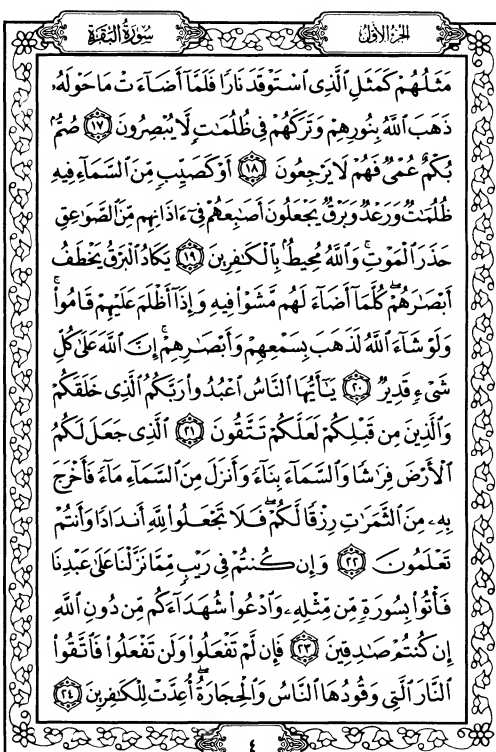 سُورَةُ البَقَرَةِ
الجُزْءُ الأَوَّلُ
مَثَلُهُمْ كَمَثَلِ ٱلَّذِى ٱسْتَوْقَدَ نَارًا فَلَمَّآ أَضَآءَتْ مَا حَوْلَهُۥ
ذَهَبَ ٱللَّهُ بِنُورِهِمْ وَتَرَكَهُمْ فِى ظُلُمَـٰتٍ لَّا يُبْصِرُونَ ١٧ صُمٌّۢ
بُكْمٌ عُمْىٌ فَهُمْ لَا يَرْجِعُونَ ١٨ أَوْ كَصَيِّبٍ مِّنَ ٱلسَّمَآءِ فِيهِ
ظُلُمَـٰتٌ وَرَعْدٌ وَبَرْقٌ يَجْعَلُونَ أَصَـٰبِعَهُمْ فِىٓ ءَاذَانِهِم مِّنَ ٱلصَّوَٰعِقِ
حَذَرَ ٱلْمَوْتِ ۚ وَٱللَّهُ مُحِيطٌۢ بِٱلْكَـٰفِرِينَ ١٩ يَكَادُ ٱلْبَرْقُ يَخْطَفُ
أَبْصَـٰرَهُمْ ۖ كُلَّمَآ أَضَآءَ لَهُم مَّشَوْا۟ فِيهِ وَإِذَآ أَظْلَمَ عَلَيْهِمْ قَامُوا۟ ۚ
وَلَوْ شَآءَ ٱللَّهُ لَذَهَبَ بِسَمْعِهِمْ وَأَبْصَـٰرِهِمْ ۚ إِنَّ ٱللَّهَ عَلَىٰ كُلِّ
شَىْءٍ قَدِيرٌ ٢٠ يَـٰٓأَيُّهَا ٱلنَّاسُ ٱعْبُدُوا۟ رَبَّكُمُ ٱلَّذِى خَلَقَكُمْ
وَٱلَّذِينَ مِن قَبْلِكُمْ لَعَلَّكُمْ تَتَّقُونَ ٢١ ٱلَّذِى جَعَلَ لَكُمُ
ٱلْأَرْضَ فِرَٰشًا وَٱلسَّمَآءَ بِنَآءً وَأَنزَلَ مِنَ ٱلسَّمَآءِ مَآءً فَأَخْرَجَ
بِهِۦ مِنَ ٱلثَّمَرَٰتِ رِزْقًا لَّكُمْ ۖ فَلَا تَجْعَلُوا۟ لِلَّهِ أَندَادًا وَأَنتُمْ
تَعْلَمُونَ ٢٢ وَإِن كُنتُمْ فِى رَيْبٍ مِّمَّا نَزَّلْنَا عَلَىٰ عَبْدِنَا
فَأْتُوا۟ بِسُورَةٍ مِّن مِّثْلِهِۦ وَٱدْعُوا۟ شُهَدَآءَكُم مِّن دُونِ ٱللَّهِ
إِن كُنتُمْ صَـٰدِقِينَ ٢٣ فَإِن لَّمْ تَفْعَلُوا۟ وَلَن تَفْعَلُوا۟ فَٱتَّقُوا۟
ٱلنَّارَ ٱلَّتِى وَقُودُهَا ٱلنَّاسُ وَٱلْحِجَارَةُ ۖ أُعِدَّتْ لِلْكَـٰفِرِينَ ٢٤
٤